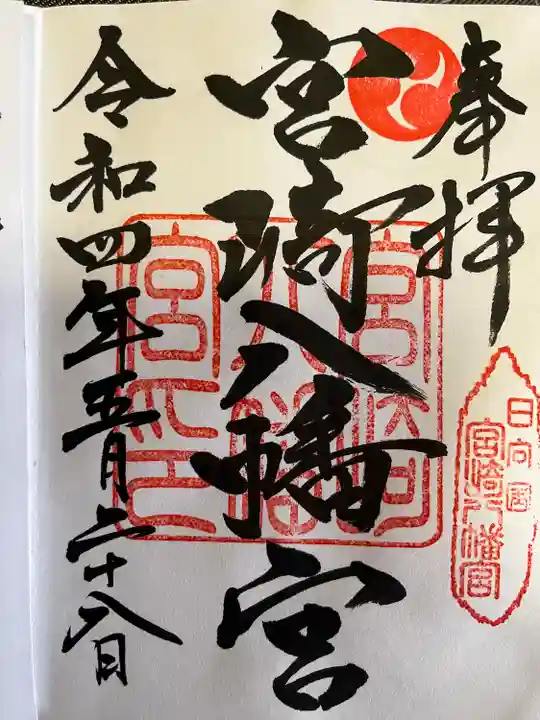 奉拝
宮崎八幡宮
令和四年五月二十八日
宮崎
八幡
宮印
日向国
宮崎八幡宮